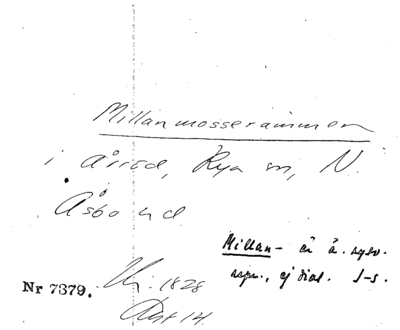 Millanmosserammen
i Årröd, Rya sn, N.
Åsbo hd.
Millan- är å. sysv.
aspn., ej dial. I-s.
Nr 7379. 1828
Akt 14.